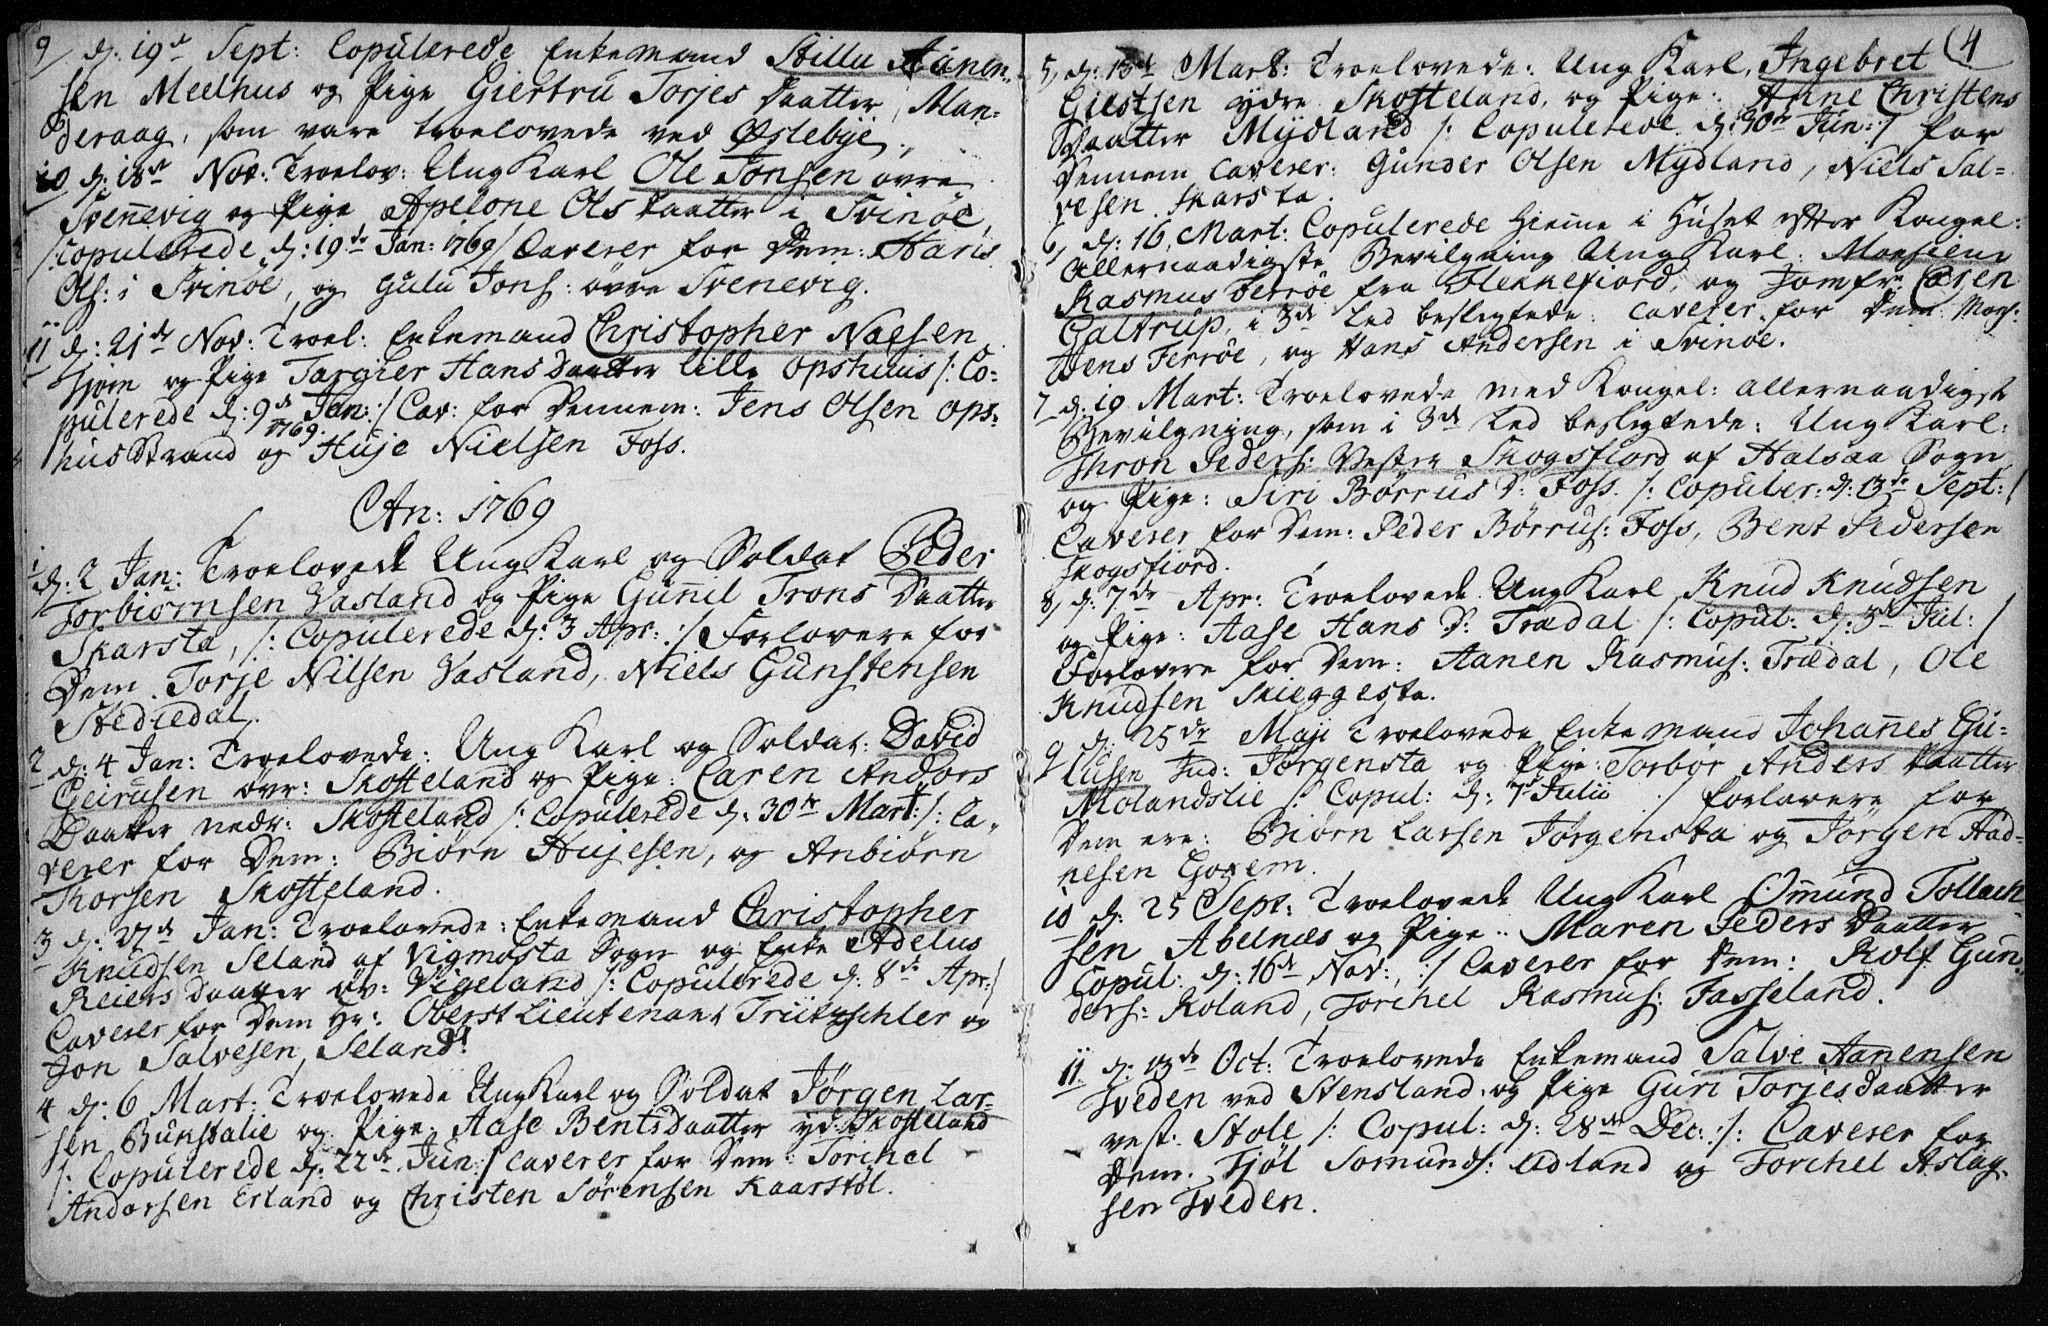 9 d: 19de Sept: Copulerede Enkemand Stillu Aanen-
sen Meelhus og Pige Giertru Torjes Daatter, Man-
deraag, som vare troelovede ved Øslebye.
10 d: 18de Nov: Troelov: Ung Karl Ole Jonsen øvre
Svennevig og Pige Apelone Ols Daatter i Svinøe,
/: Copulerede d: 19de Jan: 1769/ Caverer for Dem: Hans
Ols: i Svinøe, og Gulu Jons: øvre Svenevig.
11 d: 21de Nov: Troel: Enkemand Christopher Noesen
Hjem og Pige Targier Hans Daatter lille Opshuus /: Co-
pulerede d: 9de Jan: :/ Cav: for Dennem: Jens Olsen Ops-
1769.
hus Strand og Huje Nielsen Foss.
An: 1769
1 d: 2 Jan: Troelovede Ung Karl og Soldat Peder
Torbiørnsen Vasland og Pige Gunnil Trons Daatter
Skarsta, /: Copulerede d: 3 Apr: :/ Forlovere for
Dem Torje Nilsen Vasland, Niels Gunstensen
Stediedal.
2 d: 4 Jan: Troelovede: Ung Karl og Soldat: David
Geirusen øvr: Skofteland og Pige: Caren Andors
Daatter nedr: Skofteland /: Copulerede d: 30te Mart: /: Ca-
verer for Dem: Biørn Hujesen, og Anbiørn
Thorsen Skofteland.
3 d: 27de Jan: Troelovede: Enkemand Christopher
Knudsen Seland af Vigmosta Sogn og Enke Adelus
Reiers Daatter øv: Vigeland /: Copulerede d: 8de Apr: /
Caverer for Dem Hr: Oberst Lieutenant Trützschler og
Jon Salvesen Seland.
4 d: 6 Mart: Troelovede Ung Karl og Soldat Jørgen Lar-
sen Bunstalie og Pige: Aase Bents Daatter yd: Skofteland
/: Copulerede d: 22de Jun: / Caverer for Dem: Torchel
Andorsen Erland og Christen Sørensen Kaarstøl.
(4
5, d: 15de Mart: Troelovede: Ung Karl, Ingebret
Giestsen ydre Skofteland, og Pige: Anne Christens
Daatter Mydland /: Copulerede d: 30te Jun: / for
Dennem Caverer: Gunder Olsen Mydland, Niels Sal-
vesen Skarsta.
6, d: 16 Mart: Copulerede Hieme i Huset efter Kongel:
Allernaadigste Bevilgning Ung Karl: Monsieur
Rasmus Ferrøe fra Flekkefiord, og Jomfr: Caren
Galtrup, i 3de Led beslegtede: Caverer for Dem Mons:
Jens Ferrøe, og Hans Andersen i Svinøe.
7 d: 19 Mart: Troelovede med Kongel: allernaadigst
Bevilgning, som i 3de Led beslegtede: Ung Karl:
Thron Peders: Vestre Skogsfiord af Halsaa Sogn
og Pige: Siri Børrus D: Foss. /: Copuler: d: 13de Sept: /
Caverer for Dem: Peder Børrus: Foss, Bent Pedersen
Skogsfiord.
8, d: 7de Apr: Troelovede Ung Karl Knud Knudsen
og Pige: Aase Hans D: Trædal /: Copul: d: 3de Jul: /
Forlovere for Dem: Aanen Rasmus: Trædal, Ole
Knudsen Skieggesta.
9 d: 25de Maji Troelovede Enkemand Johannes Gu-
lusen Ind: Jørgensta og Pige: Torbor Anders Daatter
Molandslie /: Copul: d: 7de Julii :/ forlovere for
Dem ere: Biørn Larsen Jørgensta og Jørgen Aad-
nesen Goxem.
10 d: 25 Sept: Troelovede Ung Karl Omund Tollach-
sen Abelnæs og Pige: Maren Peders Daatter
Copul: d: 16de Nov: :/ Caverer for Dem: Rolf Gun-
ders: Roland, Torchel Rasmus: Fasseland.
11. d: 13de Oct: Troelovede Enkemand Salve Aanensen
Sveden ved Stensland og Pige Guri Torjes Daatter
vest: Støle /: Copul: d: 28de Dec: :/: Caverer for
Dem: Fjøl Somunds: Udland og Torchel Aslag-
sen Sveden.